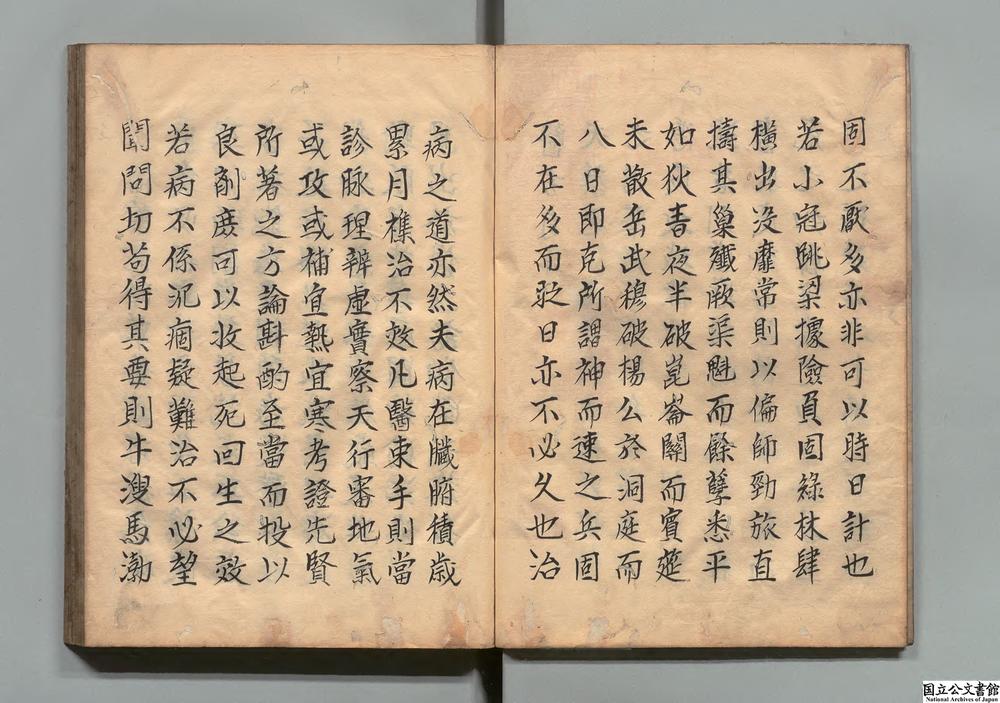 固不厭多亦非可以時日計也
若小冦跳梁據險負固綠林肆
橫出没靡常則以偏師勁旅直
擣其巢殱厥渠魁而餘孽悉平
如狄青夜半破崑崙關而賓筵
未散岳武穆破楊公於洞庭而
八日即克所謂神而速之兵固
不在多而欵日亦不必久也治
病之道亦然夫病在臟腑積歲
累月樵治不效凡醫束手則當
診脉理辨虛實察天行審地氣
或攻或補宜熱宜寒考證先賢
所著之方論斟酌至當而投以
良劑庶可以收起死回生之效
若病不係沉痼疑難治不必望
聞問切苟得其要則牛溲馬渤
国立公文書館
National Archives of Japan